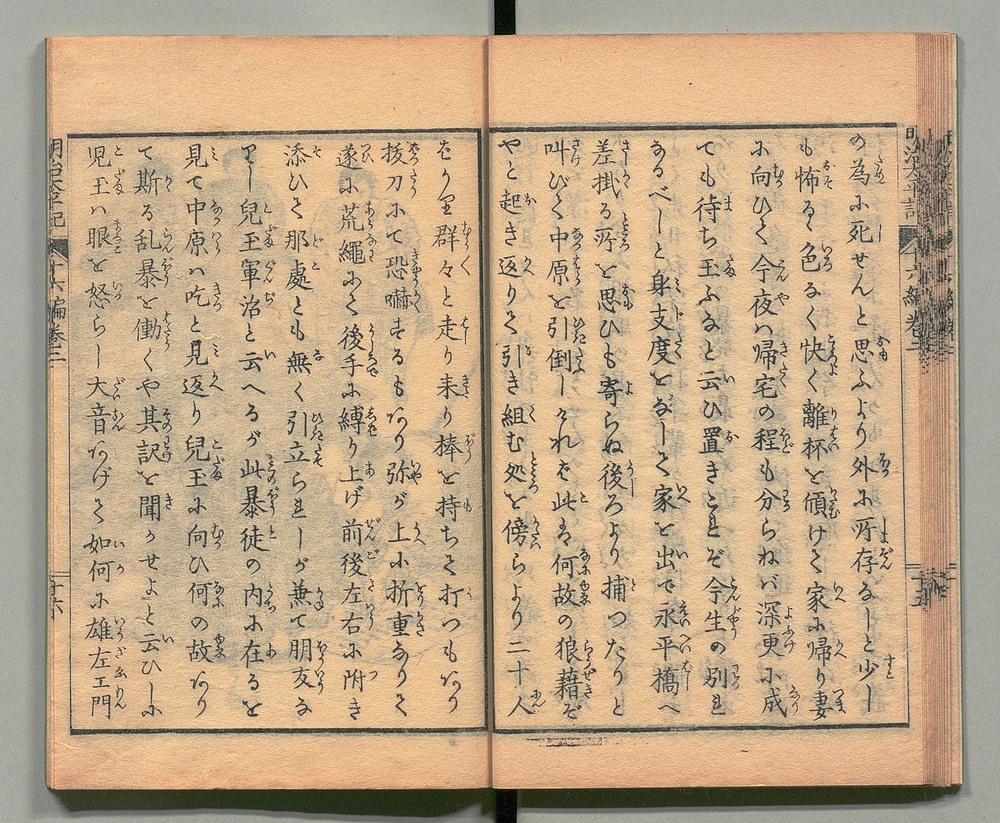 の為に死せんと思ふより外に所存なしと少し
も怖るゝ色なく快く離杯を傾けて家に帰り妻
に向ひて今夜ハ帰宅の程も分らねバ深更に成
ても待ち玉ふなと云ひ置きこれぞ今生の別れ
なるべしと身支度をなして家を出で永平橋へ
差掛る所を思ひも寄らぬ後ろより捕つたりと
叫びて中原を引倒しけれバ此ハ何故の狼藉ぞ
やと起き返りて引き組む処を傍らより二十人
ばかり群々と走り来り棒を持ちて打つもあり
抜刀にて恐嚇するもあり弥が上に折重なりて
遂に荒縄にて後手に縛り上げ前後左右に附き
添ひて那處とも無く引立られしが兼て朋友な
りし兒玉軍治と云へるが此暴徒の内に在るを
見て中原ハ吃と見返り兒玉に向ひ何の故あり
て斯る乱暴を働くや其訳を聞かせよと云ひしに
児玉ハ眼を怒らし大音あげて如何に雄左エ門
明治太平記
十六編巻二
十五
明治太平記
十六編巻二
十六